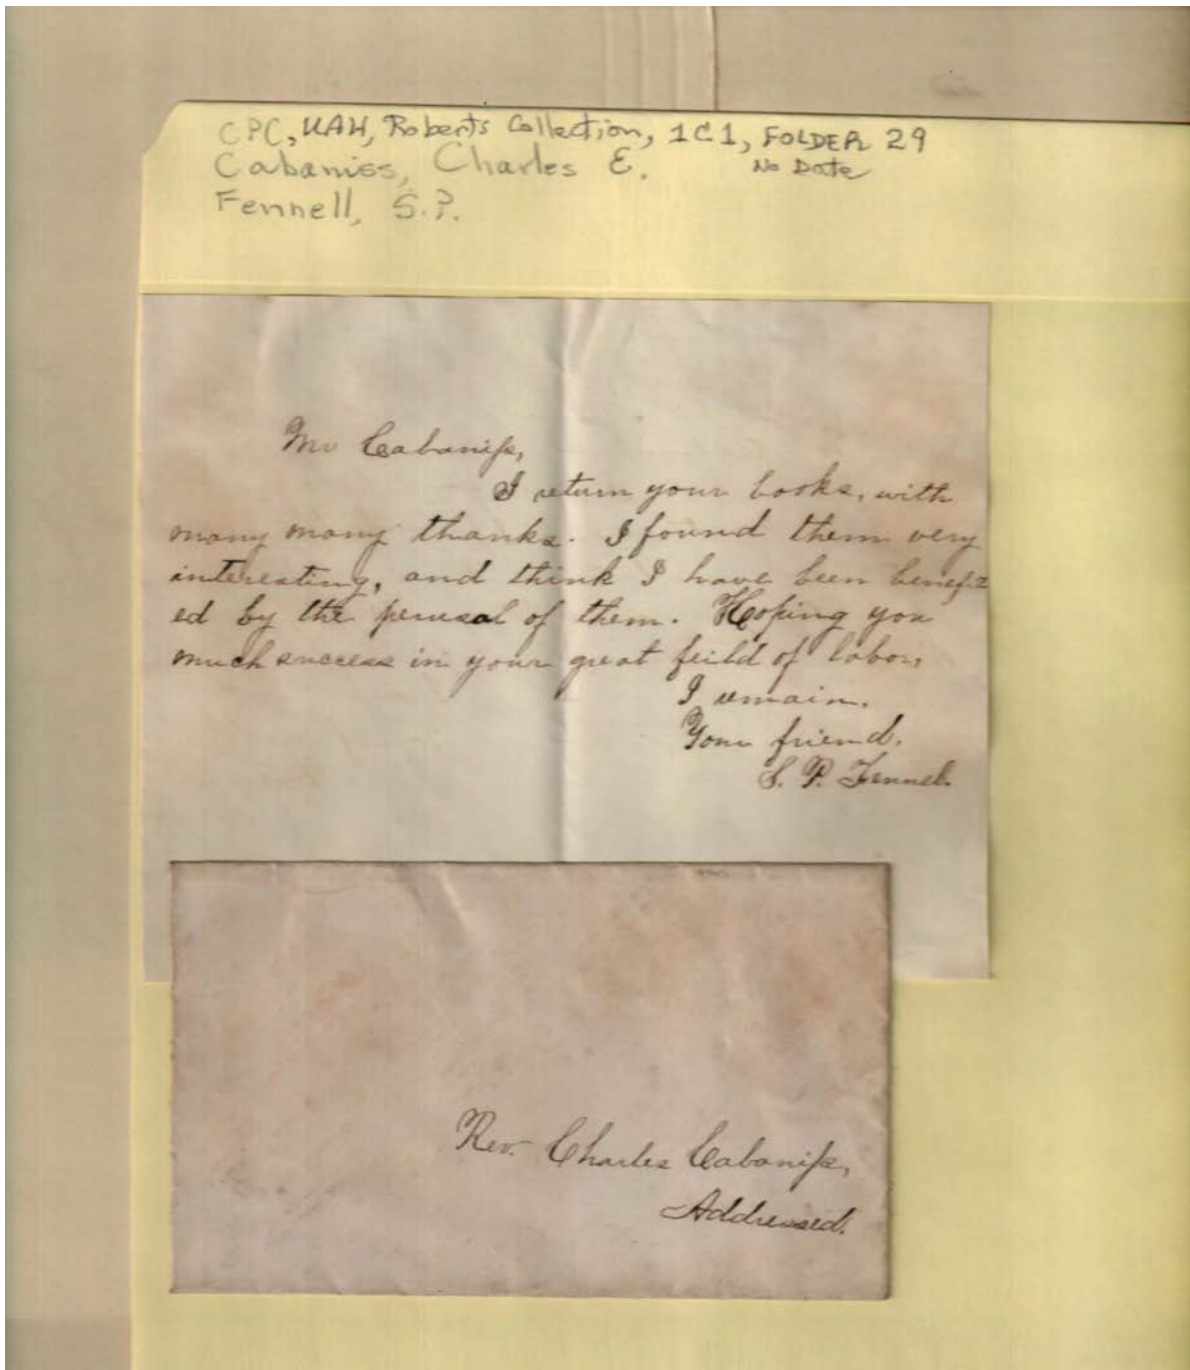 CPC, UAH, Roberts Collection, 1C1, FOLDER 29
Cabaniss, Charles E. No Date
Fennell, S.P.
Mr Cabaniſs,
I return your books, with
many many thanks. I found them very
interesting, and think I have been benefit
ed by the perusal of them. Hoping you
much success in your great feild of labor,
I remain.
Your friend,
S. P. Fennel.
Rev. Charles Cabaniſs,
Addressed.